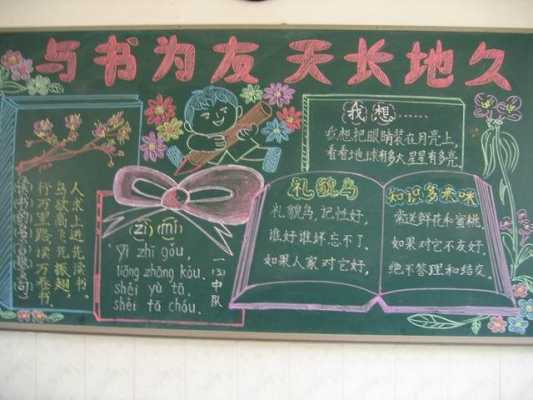 与书为友 天长地久
读书的名言警句
人求上进先读书，
鸟欲高飞先振翅，
行万里路，读万卷书。
(zì mí)
Yì zhī gǒu,
liǎng zhāng kǒu.
shéi yù tā,
shéi tā chóu.
一(3)中队
我想……
我想把眼睛装在月亮上，
看看地球有多大星星有多亮
礼貌鸟
礼貌鸟，记性好，
谁好谁坏忘不了，
如果人家对它好，
知识多来咪
常送鲜花和蜜桃，
如果对它不友好，
绝不答理和结交。